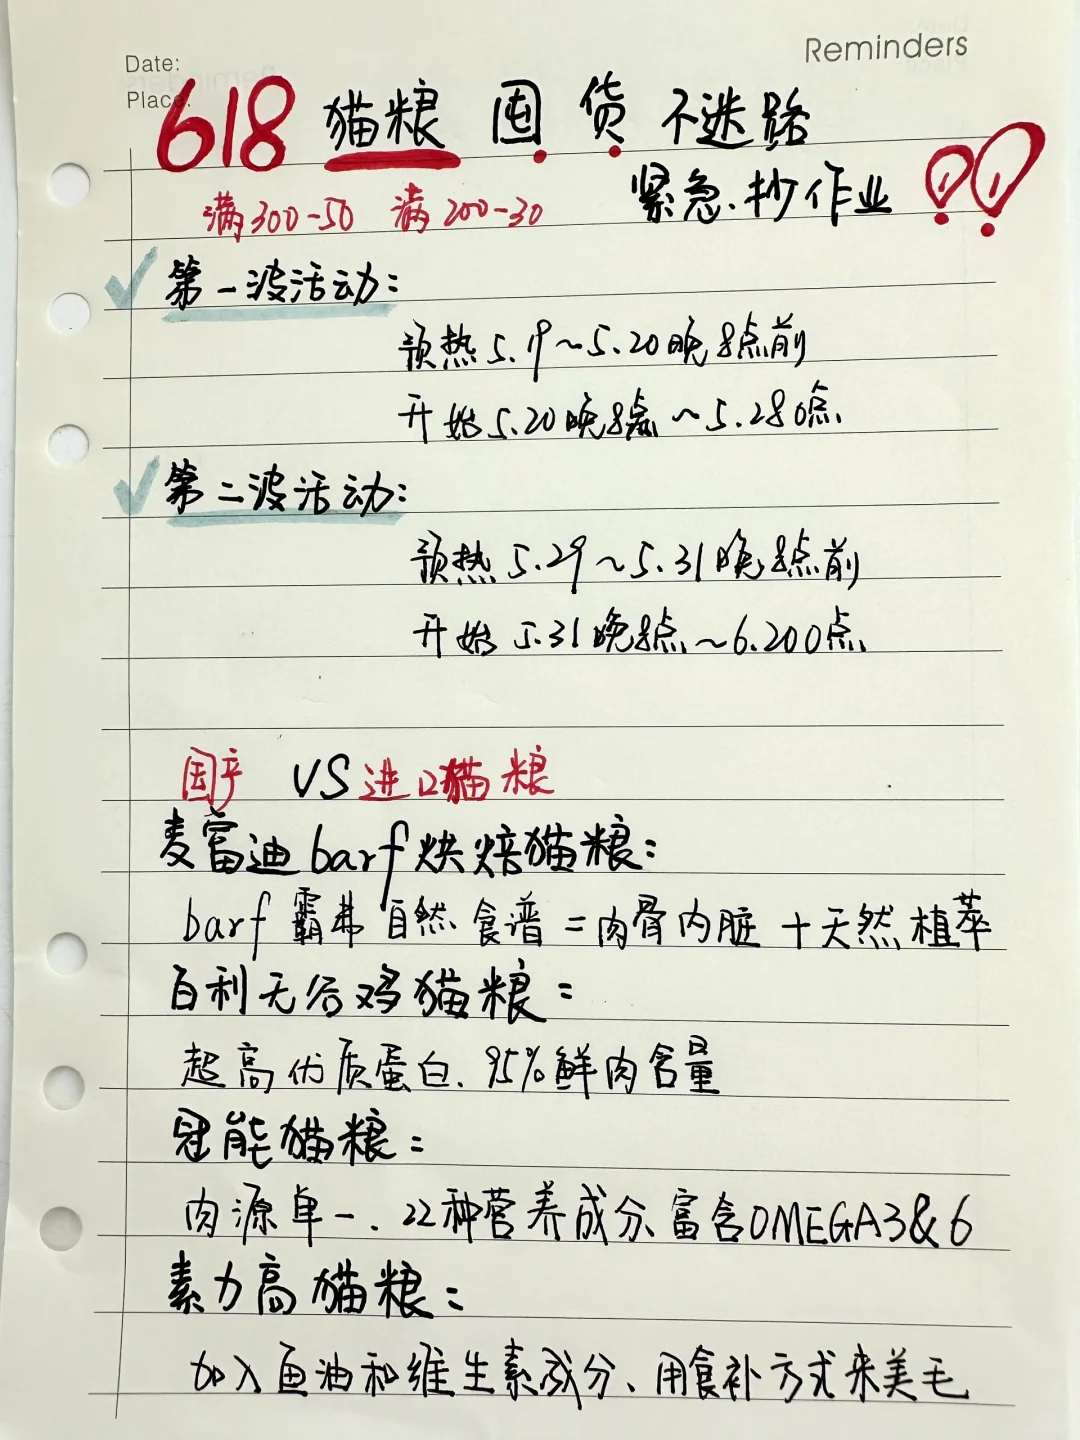 Reminders
Date:
Place:
618 猫粮 囤货不迷路
紧急.抄作业
满300-50 满200-30
第一波活动:
预热5.19~5.20晚8点前
开始5.20晚8点~5.280点
第二波活动:
预热5.29~5.31晚8点前
开始5.31晚8点~6.200点
国产 VS进口猫粮
麦富迪barf烘焙猫粮:
barf霸弗自然食谱=肉骨内脏+天然植萃
百利无谷鸡猫粮:
超高优质蛋白、95%鲜肉含量
冠能猫粮:
肉源单一、22种营养成分、富含OMEGA3&6
素力高猫粮:
加入鱼油和维生素成分、用食补方式来美毛